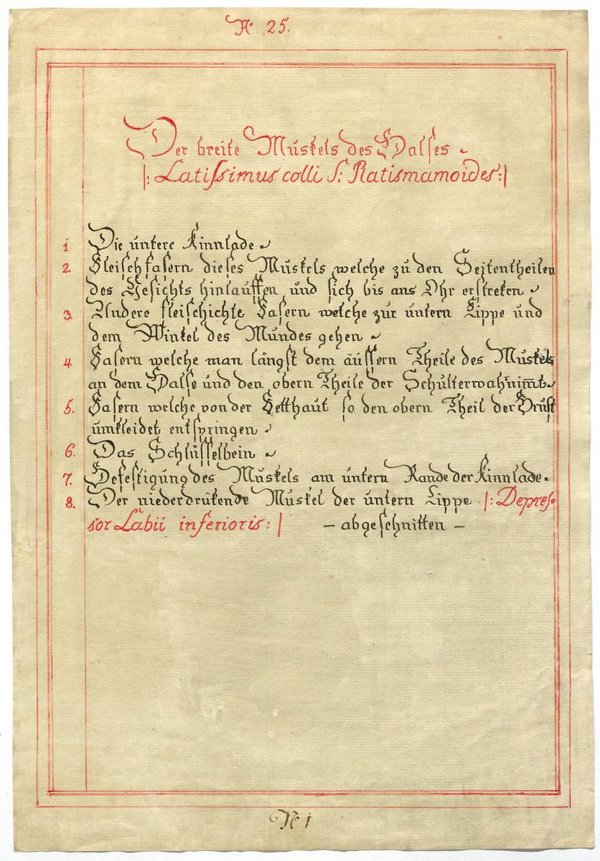 N: 25.
Der breite Muskels des Halses
|: Latissimus colli S: Platismamoides:|
1 Die untere Kinnlade
2. Fleischfasern dieses Muskels welche zu den Seitentheilen
des Gesichts hinlauffen und sich bis ans Ohr erstreken
3. Andere fleischichte Fasern welche zur untern Lippe und
dem Winkel des Mundes gehen
4 Fasern welche man längst dem äussern Theile des Muskels
an dem Halse und den obern Theile der Schulter wahrnimt
5. Fasern welche von der Fetthaut so den obern Theil der Brust
umkleidet entspringen
6. Das Schlüsselbein
7. Befestigung des Muskels am untern Rande der Kinnlade
8. Der niederdrükende Muskel der untern Lippe |: Depres-
sor Labii inferioris: | – abgeschnitten –
N: 1